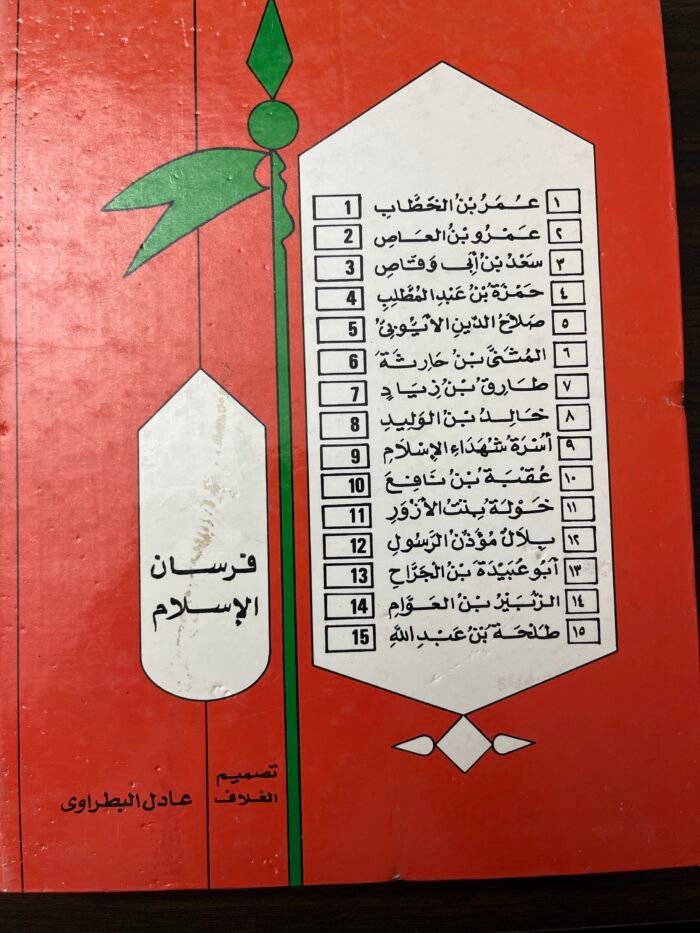 ١ عُمَرُ بْنُ الخَطَّابِ 1
٢ عَمْرُو بْنُ العَاصِ 2
٣ سَعْدُ بْنُ أَبِي وَقَّاصٍ 3
٤ حَمْزَةُ بْنُ عَبْدِ المُطَّلِبِ 4
٥ صَلَاحُ الدِّينِ الأَيُّوبِيُّ 5
٦ المُثَنَّى بْنُ حَارِثَةَ 6
٧ طَارِقُ بْنُ زِيَادٍ 7
٨ خَالِدُ بْنُ الوَلِيدِ 8
٩ أُسْرَةُ شُهَدَاءِ الإِسْلَامِ 9
١٠ عُقْبَةُ بْنُ نَافِعَ 10
١١ خَوْلَةُ بِنْتُ الأَزْوَرِ 11
١٢ بِلَالُ مُؤَذِّنُ الرَّسُولِ 12
١٣ أَبُو عُبَيْدَةَ بْنُ الجَرَّاحِ 13
١٤ الزُّبَيْرُ بْنُ العَوَّامِ 14
١٥ طَلْحَةُ بْنُ عَبْدِ اللَّهِ 15
فرسان
الإسلام
تصميم
الغلاف عادل البطراوى